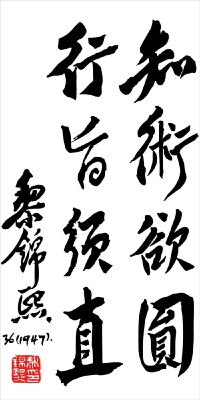 知術欲圓
行旨須直
黎錦熙
36(1947).